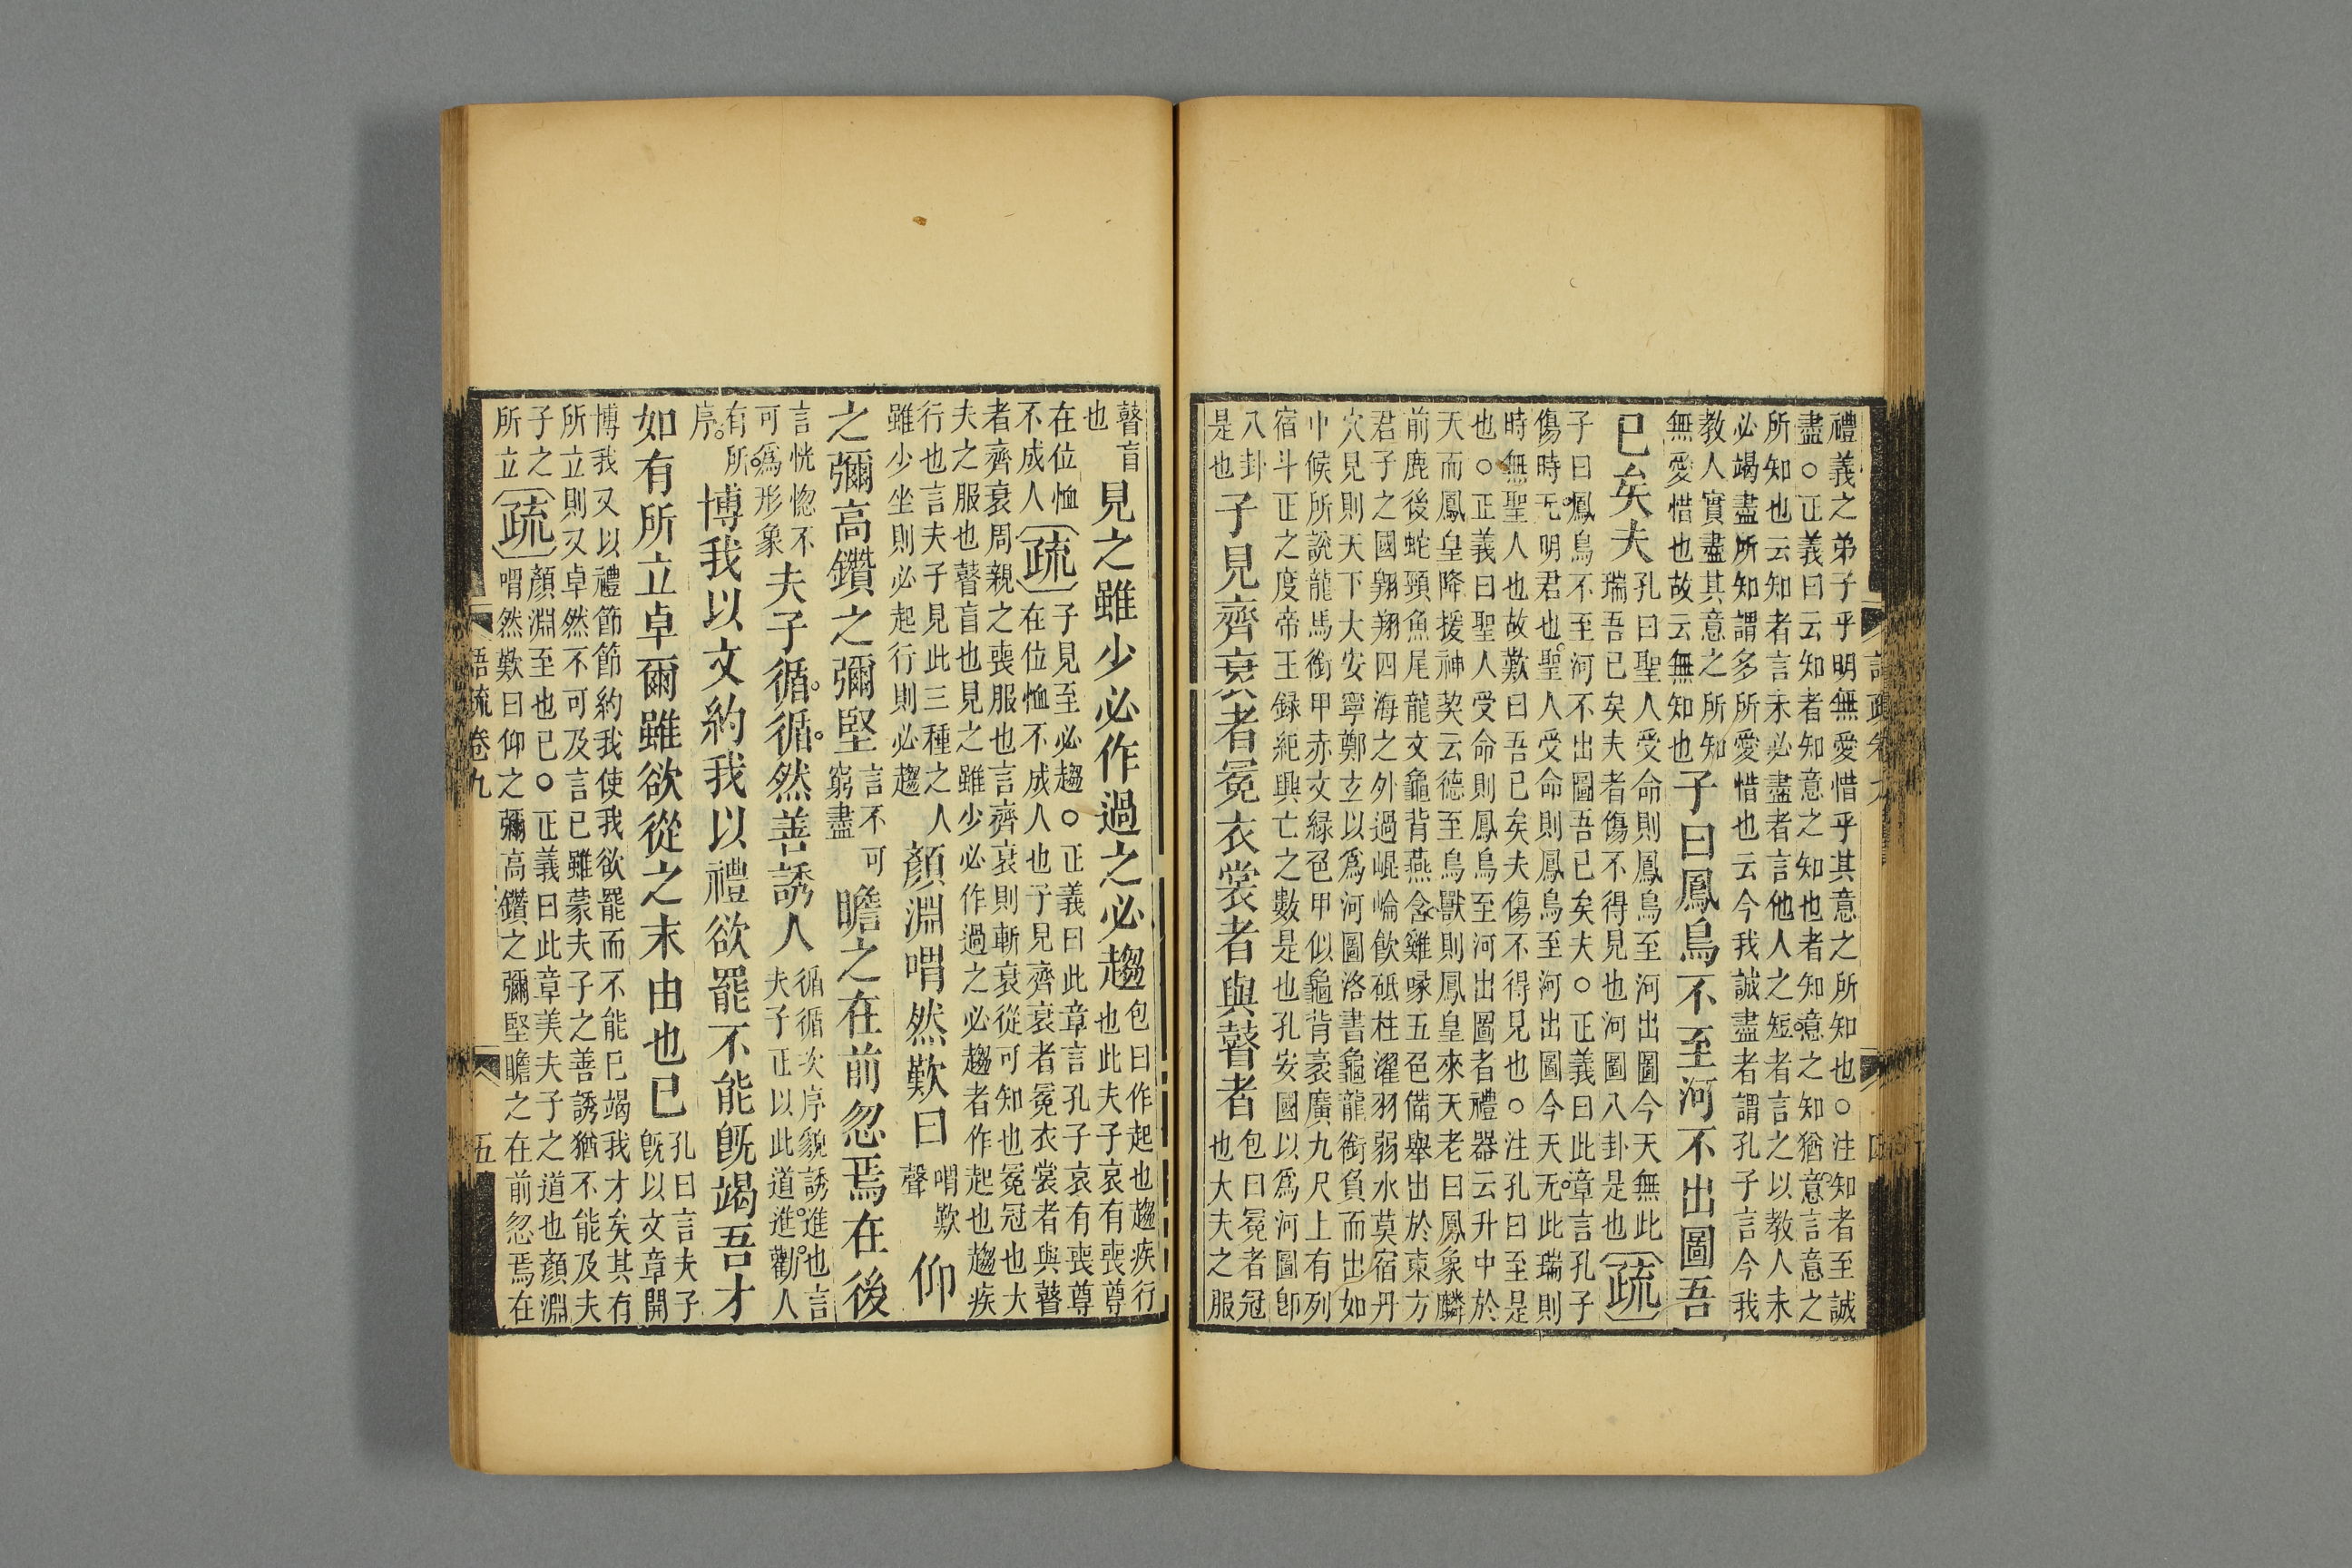 禮義之弟子乎明無愛惜乎其意之所知也○注知者至誠
盡○正義曰云知者知意之知也者知意之知猶意言意之
所知也云知者言未必盡者言他人之短者言之以教人未
必竭盡所知謂多所愛惜也云今我誠盡者謂孔子言今我
教人實盡其意之所知
無愛惜也故云無知也
子曰鳳鳥不至河不出圖吾
已矣夫
孔曰聖人受命則鳳鳥至河出圖今天無此
瑞吾已矣夫者傷不得見也河圖八卦是也
疏
子曰鳳鳥不至河不出圖吾已矣夫○正義曰此章言孔子
傷時无明君也聖人受命則鳳鳥至河出圖今天无此瑞則
時無聖人也故歎曰吾已矣夫傷不得見也○注孔曰至是
也○正義曰聖人受命則鳳鳥至河出圖者禮器云升中於
天而鳳皇降援神契云德至鳥獸則鳳皇來天老曰鳳象麟
前鹿後蛇頸魚尾龍文龜背燕含雞喙五色備舉出於東方
君子之國翱翔四海之外過崐崘飲砥柱濯羽弱水莫宿丹
穴見則天下大安寧鄭玄以爲河圖洛書龜龍銜負而出如
中候所說龍馬銜甲赤文緑色甲似龜背袤廣九尺上有列
宿斗正之度帝王録紀興亡之數是也孔安國以爲河圖卽
八卦
是也
子見齊衰者冕衣裳者與瞽者
包曰冕者冠
也大夫之服
瞽盲
也
見之雖少必作過之必趨
包曰作起也趨疾行
也此夫子哀有喪尊
在位恤
不成人
疏
子見至必趨○正義曰此章言孔子哀有喪尊
在位恤不成人也子見齊衰者冕衣裳者與瞽
者齊衰周親之喪服也言齊衰則斬衰從可知也冕冠也大
夫之服也瞽盲也見之雖少必作過之必趨者作起也趨疾
行也言夫子見此三種之人
雖少坐則必起行則必趨
顏淵喟然歎曰
喟歎
聲
仰
之彌高鑽之彌堅
言不可
窮盡
瞻之在前忽焉在後
言恍惚不
可爲形象
夫子循循然善誘人
循循次序貌誘進也言
夫子正以此道進勸人
有所
序
博我以文約我以禮欲罷不能旣竭吾才
如有所立卓爾雖欲從之末由也已
孔曰言夫子
旣以文章開
博我又以禮節節約我使我欲罷而不能已竭我才矣其有
所立則又卓然不可及言已雖蒙夫子之善誘猶不能及夫
子之
所立
疏
顏淵至也已○正義曰此章美夫子之道也顏淵
喟然歎曰仰之彌高鑽之彌堅瞻之在前忽焉在
語疏卷九
五